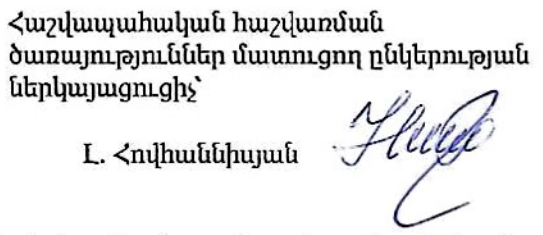 Հաշվապահական հաշվառման
ծառայություններ մատուցող ընկերության
ներկայացուցիչ՝
Լ. Հովհաննիսյան